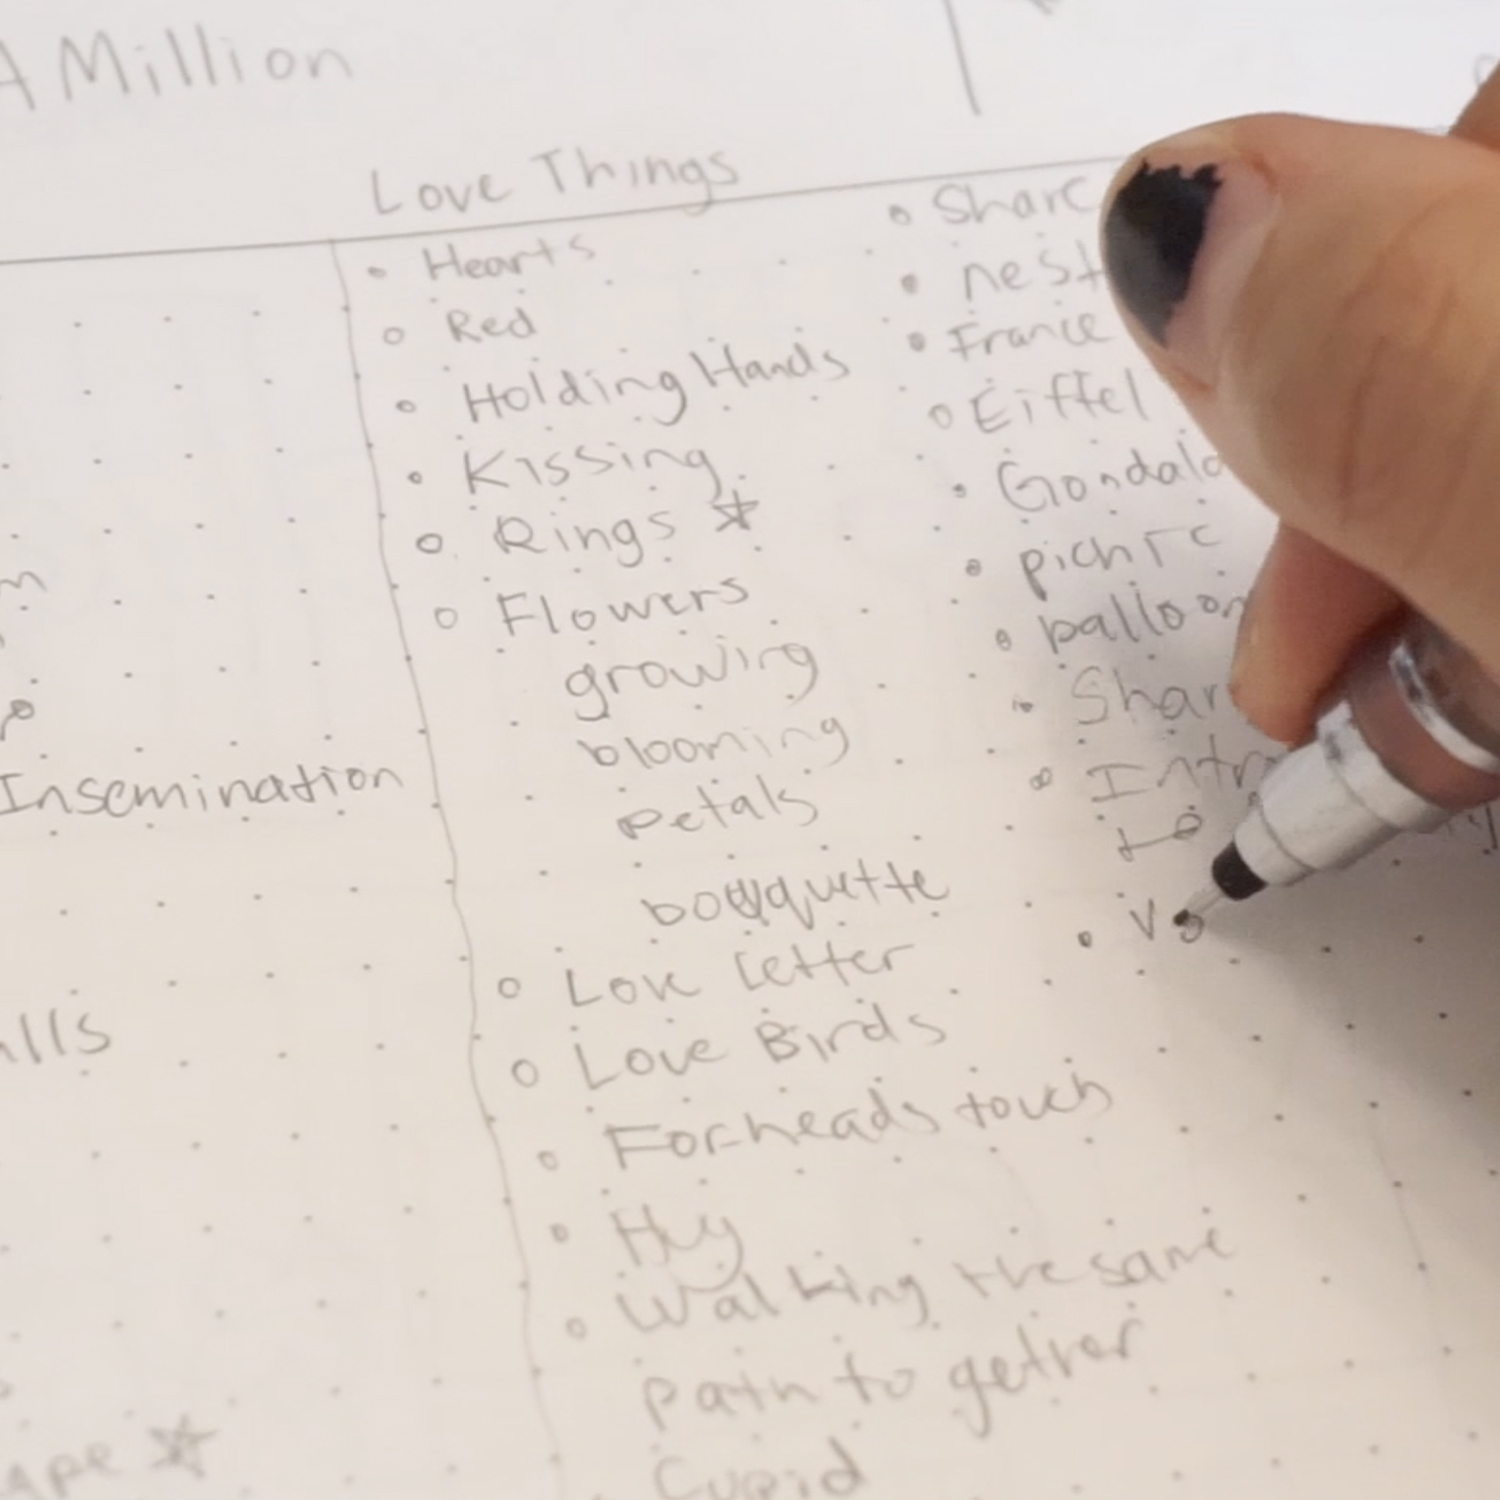 A Million
Love Things
Insemination
alls
ape
Hearts
Red
Holding Hands
Kissing
Rings
Flowers
growing
blooming
petals
bouquette
Love Letter
Love Birds
Forheads touch
Hug
Walking the same
path together
Cupid
Share
nest
France
Eiffel
Gondala
picnic
balloon
Shar
Intr
to